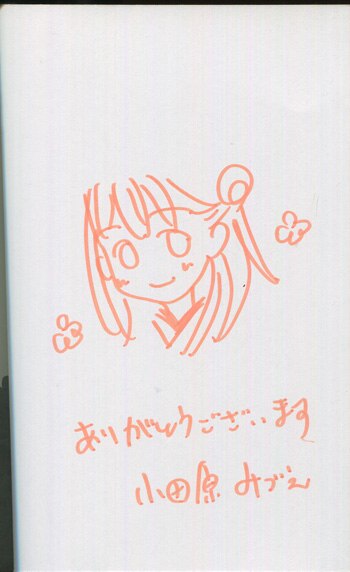 ありがとうございます
小田原 みづえ